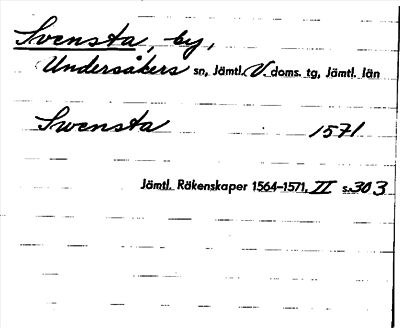 Svensta, by,
Undersåkers sn, Jämtl. V. doms. tg, Jämtl. län
Swensta 1571
Jämtl. Räkenskaper 1564-1571, II s. 303